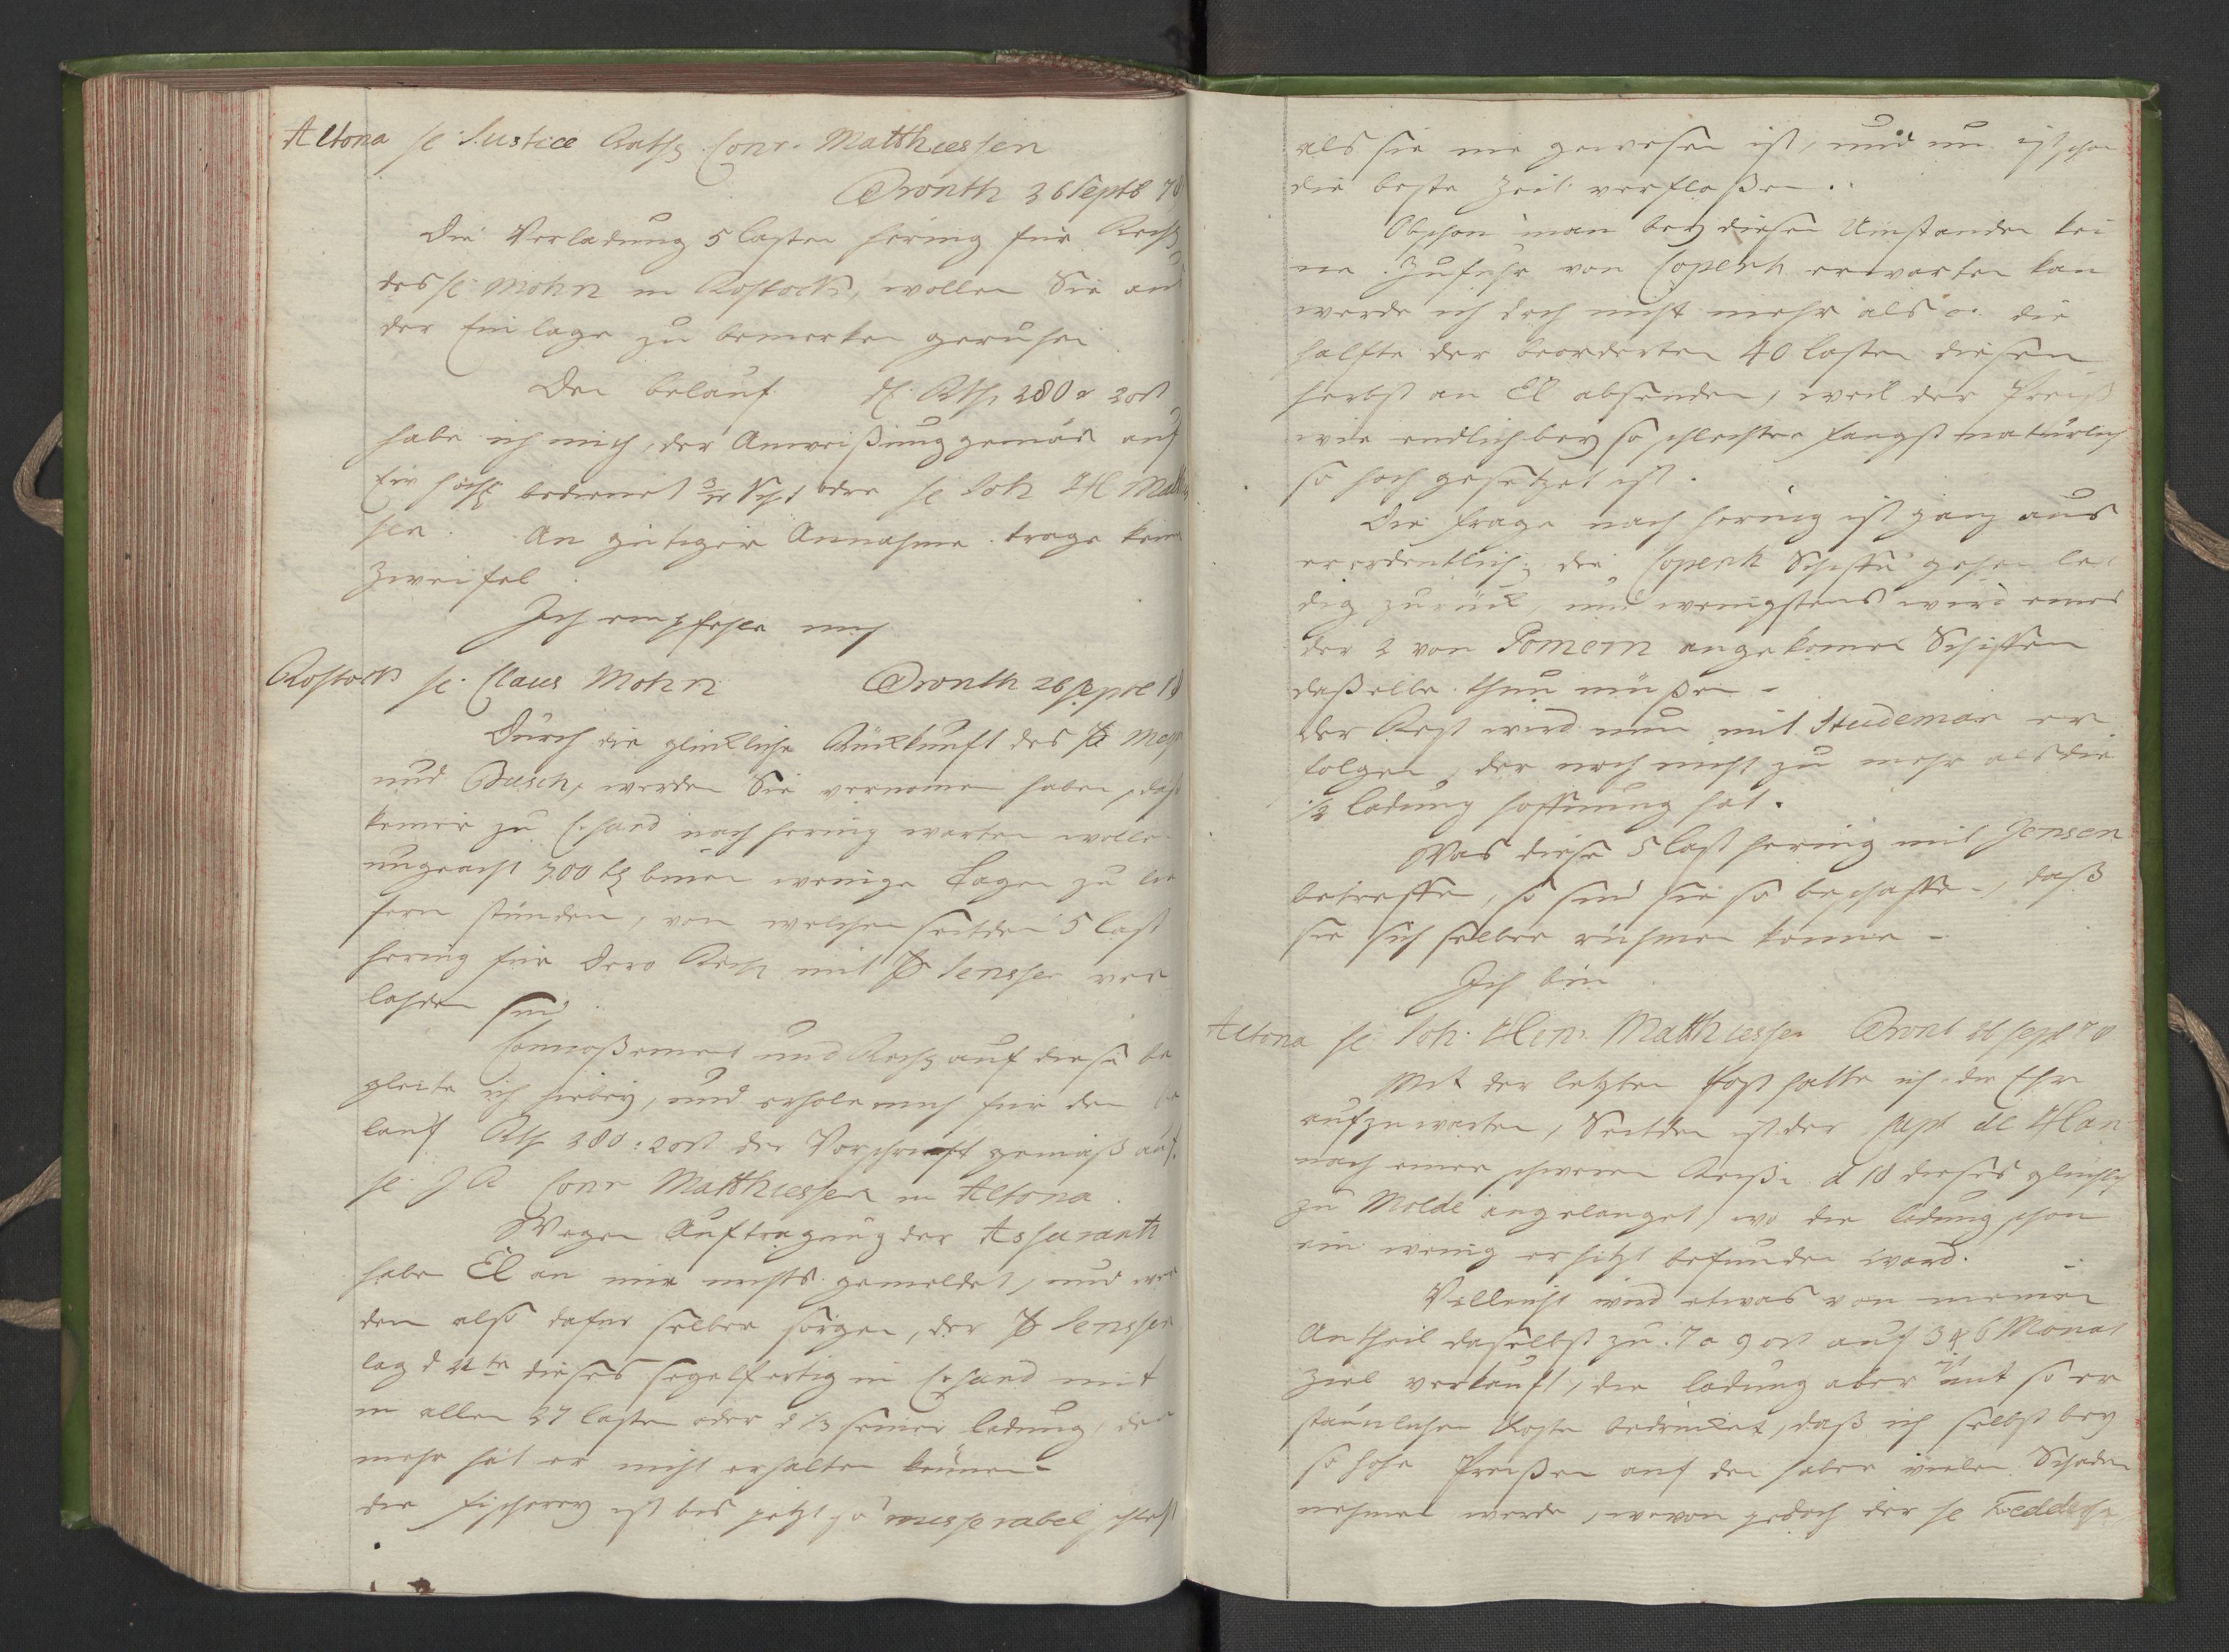 Altona H. Justice Raths Conr. Matthiessen
Dronth 26 Septb 78
Die Verladung 5 lasten hering für Rech
des H. Mohn in Rostock, wollen Sie aus
der Einlage zu bemerken geruhen
Den belauf Rth 280 " 20 ß
habe ich mich, der Anweißung gemäs auf
bedienet oder H Joh H Matthi
sen. An gütiger Annahme trage keinen
Zweifel.
Ich empfehle mich
Rostock H. Claus Mohn Dronth 26 Sept 78
Durch die glückliche Rückkunft des
und Busch, werden Sie vernomen haben, daß
keiner zu Chsand nach hering warten wolle
ungeacht 300 binnen wenige Tagen zu lie
fern stünden, von welchen seitdem 5 last
hering für Dero Rech mit Jenssen ver
laden sind.
Connoßement und Rech auf diese be
gleite ich hiebey, und erhole mich für den be
lauf Rth 280: 20 ß der Vorschrift gemäß auf
H. J R Conr Matthiessen in Altona.
Wegen Auftragung der Assurantz
haben El an mir nichts gemeldet, und wer
den also dafür selber sorgen, der Jenssen
lag d 22ten dieses segelfertig in Chsand mit
in allen 27 lasten oder d 1/3 seiner ladung, den
mehr hat er nicht erhalten können.
die fischerey ist bis jetzt so misserabel schlecht
als sie nie gewesen ist, und nu ist schon
die beste Zeit verfloßen.
Obschon man bey diesen Umstanden kei
ne Zufuhr von Copenh erwarten kan
werde ich doch nicht mehr als die
halfte der beorderten 40 lasten diesen
herbst an El absenden, weil der Preiß
wie endlich bey so schlechten fangst natürlich
so hoch gesetzet ist.
Die frage nach hering ist ganz aus
erordentlich; die Copenh Schiffe gehen le
dig zurück, und wenigstens wird eines
der 2 von Pomern angekomen Schiffen
daßelbe thun müßen.
der Rest wird nun mit Studeman er
folgen, der noch nicht zu mehr als die
1/2 ladung hoffnung hat.
Was diese 5 last hering mit Jensen
betreffen, so sind sie so beschaffen, daß
sie sich selber rühmen können.
Ich bin
Altona H. Joh. Hinr. Matthiessen Dront 26 Sept 78
Mit der letzten Post hatte ich die Ehre
aufzuwarten, Seitdem ist der Capt de Haan
nach einer schweren Reise d 18 dieses glücklich
zu Molde angelanget, wo die ladung schon
ein wenig erhitzt befunden ward.
Villeicht wird etwas von meinen
Antheil daselbst zu 7 a 9 ort auf 3 & 6 Monat
Ziel verkauft, die ladung aber ist mit so er
staunlichen Kosten bedrücket, daß ich selbst bey
so hohe Preißen auf den haber vielen Schaden
nehmen werde, wovon jedoch der H Feddersen